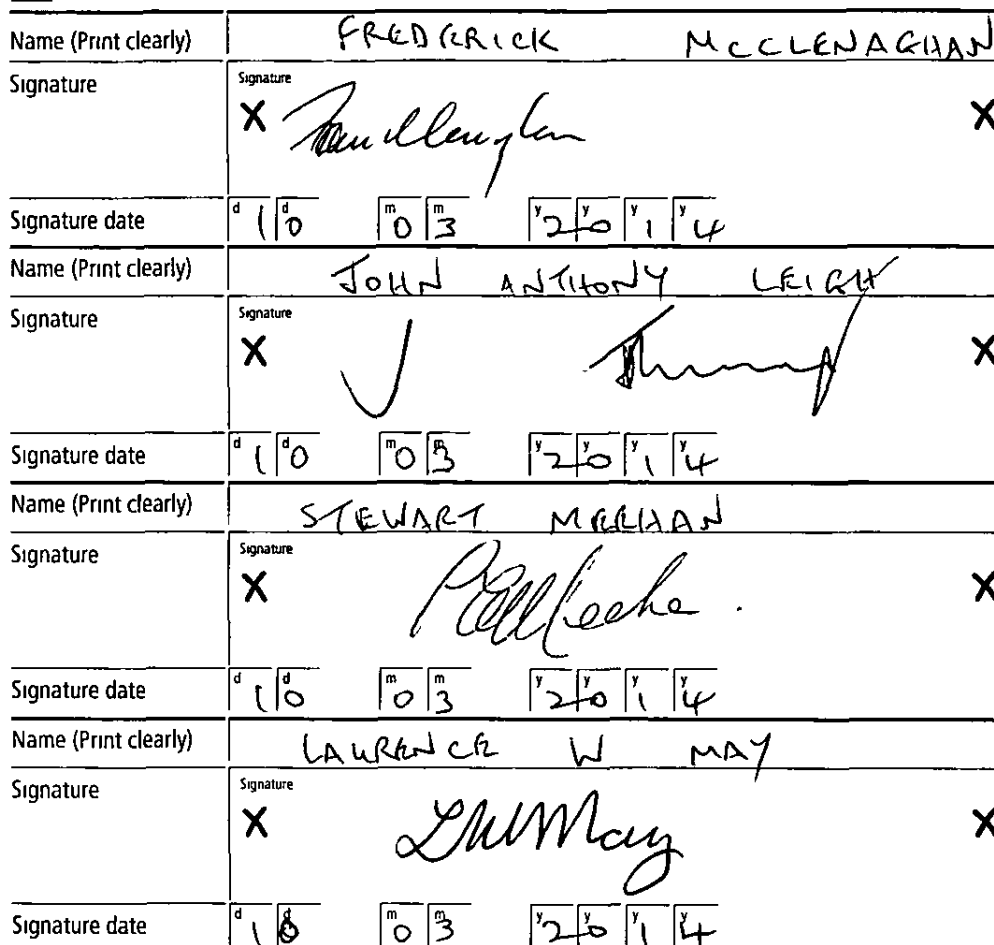 Name (Print clearly) FREDERICK MCCLENAGHAN
Signature Signature
X X
Signature date d 1 d 0 m 0 m 3 y 2 y 0 y 1 y 4
Name (Print clearly) JOHN ANTHONY LEIGH
Signature Signature
X J X
Signature date d 1 d 0 m 0 m 3 y 2 y 0 y 1 y 4
Name (Print clearly) STEWART MEEHAN
Signature Signature
X X
Signature date d 1 d 0 m 0 m 3 y 2 y 0 y 1 y 4
Name (Print clearly) LAURENCE W MAY
Signature Signature
X LWMay X
Signature date d 1 d 0 m 0 m 3 y 2 y 0 y 1 y 4